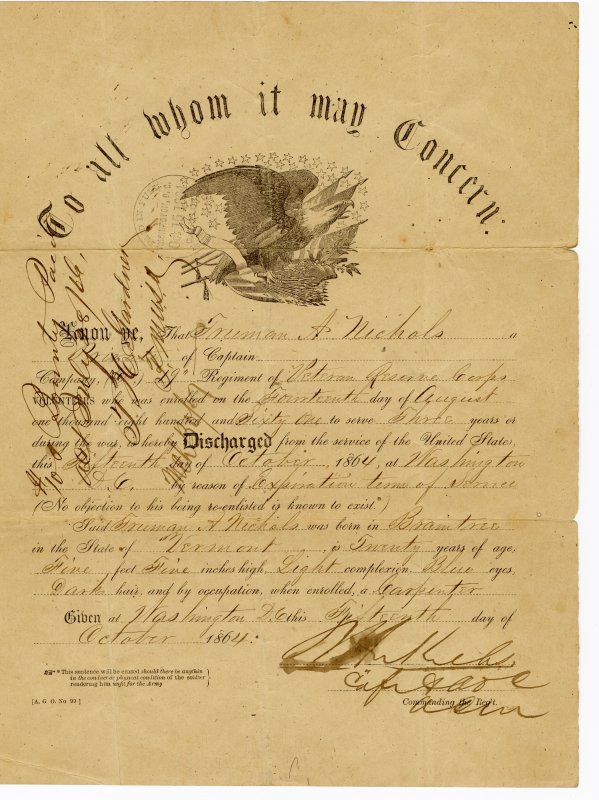 To all whom it may Concern:
Know ye, That Truman A Nichols a
of Captain
Company, 9" Regiment of Veteran Reserve Corps
VOLUNTEERS who was enrolled on the Fourteenth day of August
one thousand eight hundred and Sixty One to serve Three years or
during the war, is hereby Discharged from the service of the United States,
this Fifteenth day of October, 1864, at Washington
D.C. by reason of Expiration term of Service
(No objection to his being re-enlisted is known to exist.*)
Said Truman A Nichols was born in Braintree
in the State of Vermont, is Twenty years of age,
Five feet Five inches high, Light complexion, Blue eyes,
Dark hair, and by occupation, when enrolled, a Carpenter
Given at Washington D.C. this Fifteenth day of
October 1864.
*This sentence will be erased should there be anything
in the conduct or physical condition of the soldier
rendering him unfit for the Army
[A. G. O. No 99]
Commanding the Reg't.